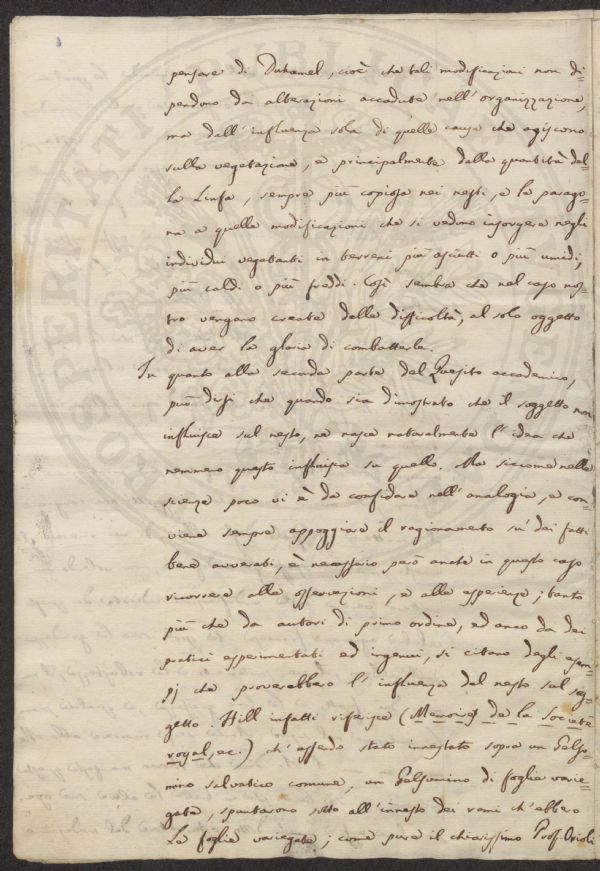 pensare di Duhamel, cioè che tali modificazioni non di=
pendono da alterazioni accadute nell'organizzazione,
ma dall'influenza sola di quelle cause che agiscono
sulla vegetazione, e principalmente dalla quantità del=
la Linfa, sempre più copiosa nei nesti, e la parago=
na a quelle modificazioni che si vedono insorgere negli
individui vegetanti in terreni più asciutti o più umidi,
più caldi o più freddi. Così sembra che nel caso nos=
tro vengano create delle difficoltà, al solo oggetto
di aver la gloria di combatterle.
In quanto alla seconda parte del Quesito accademico,
può dirsi che quando sia dimostrato che il soggetto non
influisce sul nesto, ne nasce naturalmente l'idea che
nemmeno questo influisca su quello. Ma siccome nelle
scienze poco vi è da confidare nell'analogia, e con=
viene sempre appoggiare il ragionamento su' dei fatti
bene avverati, è necessario però anche in questo caso
ricorrere alle osservazioni, e alle esperienze; tanto
più che da autori di primo ordine, ed anco da dei
pratici esperimentati ed ingenui, si citano degli esem=
pj che proverebbero l'influenza del nesto sul sog=
getto. Hill infatti riferisce (Memoires de la Societé
royal, ec.) ch'essendo stato innestato sopra un Gelso=
mino salvatico comune, un Gelsomino di foglie varie=
gate, spuntarono sotto all'innesto dei rami ch'ebbero
le foglie variegate; come pure il chiarissimo Prof. Orioli